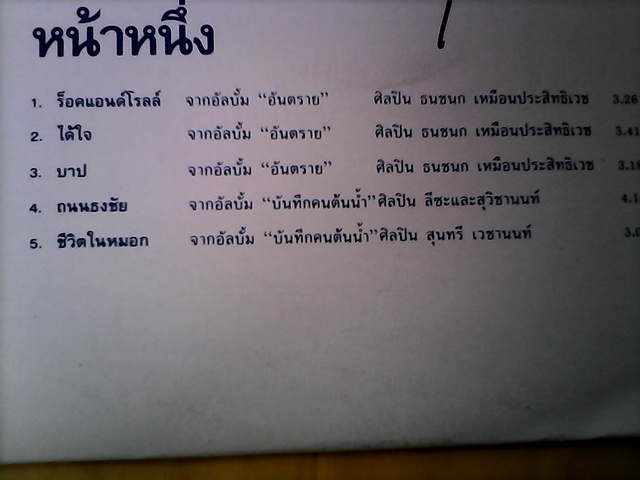 หน้าหนึ่ง
1. ร็อคแอนด์โรลล์ จากอัลบั้ม “อันตราย” ศิลปิน ธนชนก เหมือนประสิทธิเวช 3.26
2. ได้ใจ จากอัลบั้ม “อันตราย” ศิลปิน ธนชนก เหมือนประสิทธิเวช 3.41
3. บาป จากอัลบั้ม “อันตราย” ศิลปิน ธนชนก เหมือนประสิทธิเวช
4. ถนนธงชัย จากอัลบั้ม “บันทึกคนต้นน้ำ” ศิลปิน ลีซะและสุวิชานนท์
5. ชีวิตในหมอก จากอัลบั้ม “บันทึกคนต้นน้ำ” ศิลปิน สุนทรี เวชานนท์